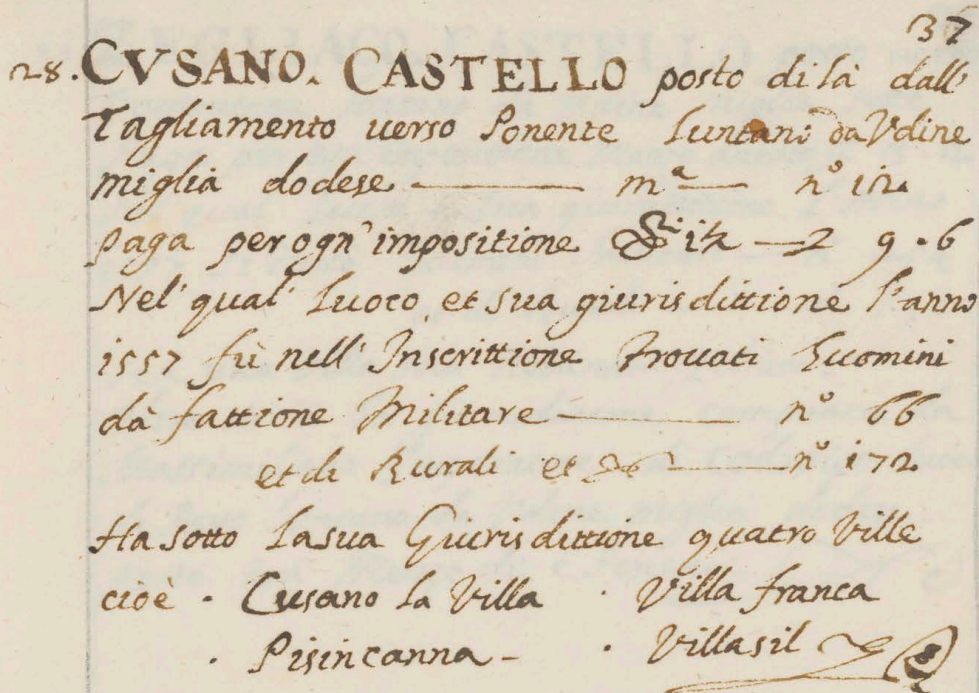 37
28. CVSANO. CASTELLO posto di là dall'
Tagliamento uerso Ponente luntani da Vdine
miglia dodese — mª — nº 12
paga per ogn' impositione — 9 . 6
Nel' qual' luoco, et sua giurisdittione l'anno
1557 fù nell' Inscrittione trouati huomini
dà fattione Militare — nº 66
et di Rurali et — nº 172
Ha sotto la sua Giurisdittione quatro Ville
cioè . Cusano la Villa . Villa franca
. Pisincanna - . Villasil